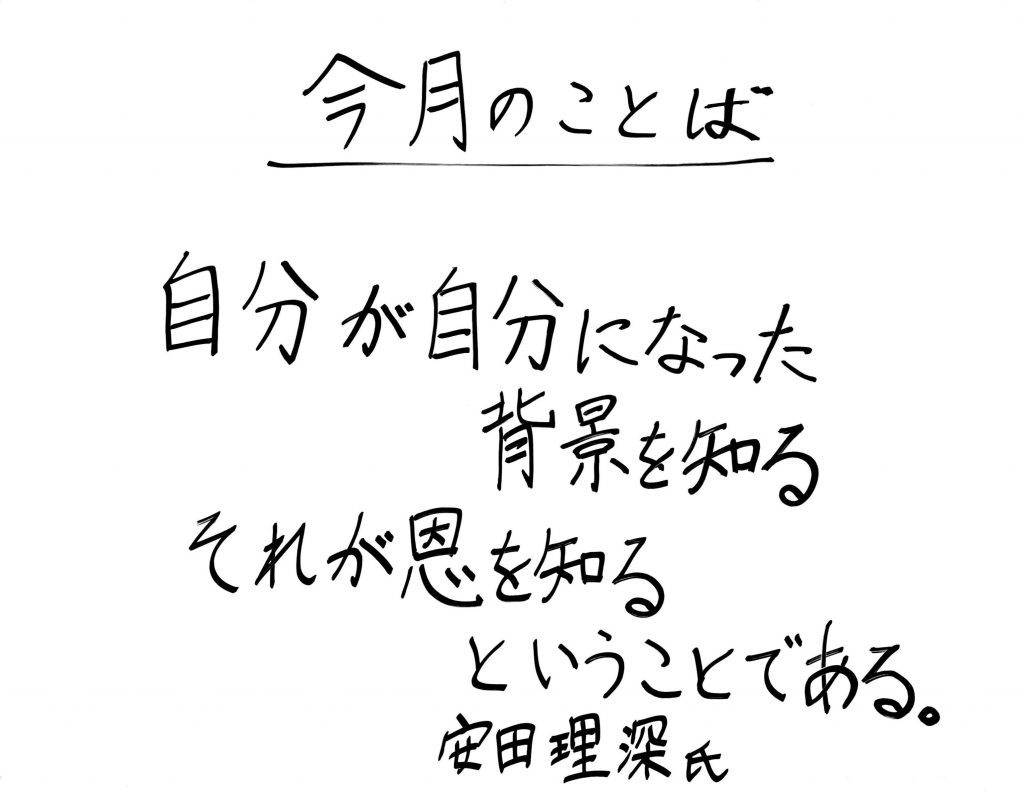 今月のことば
自分が自分になった
背景を知る
それが恩を知る
ということである。
安田理深氏